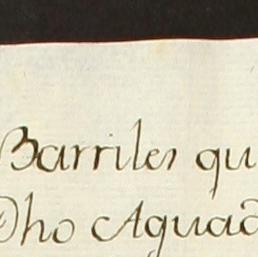 Barriles qu
Dho Aguad